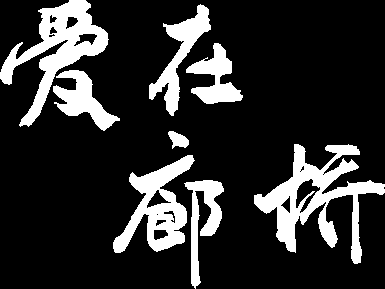 爱在
廊桥